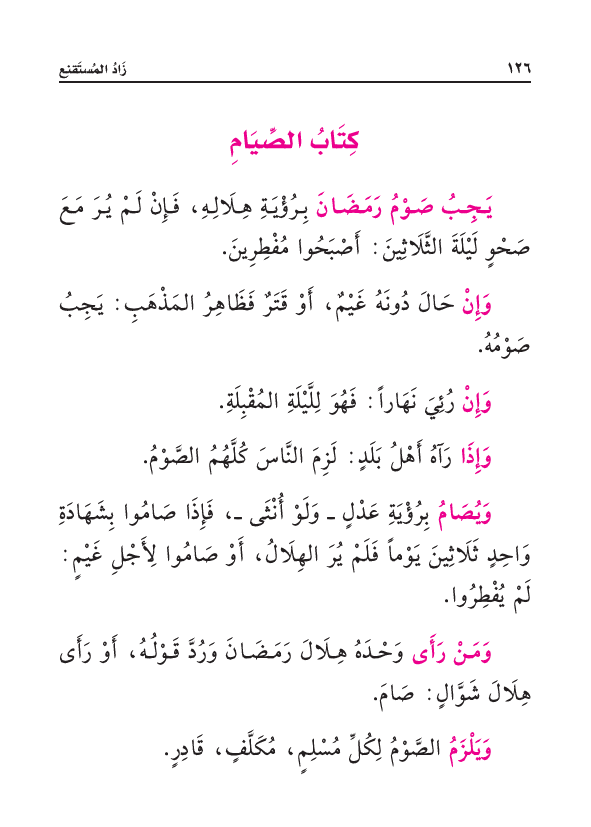 ١٢٦ زَادُ المُستَقنِع
كِتَابُ الصِّيَامِ
يَجِبُ صَوْمُ رَمَضَانَ بِرُؤْيَةِ هِلَالِهِ، فَإِنْ لَمْ يُرَ مَعَ
صَحْوٍ لَيْلَةَ الثَّلَاثِينَ: أَصْبَحُوا مُفْطِرِينَ.
وَإِنْ حَالَ دُونَهُ غَيْمٌ، أَوْ قَتَرٌ فَظَاهِرُ المَذْهَبِ: يَجِبُ
صَوْمُهُ.
وَإِنْ رُئِيَ نَهَاراً: فَهُوَ لِلَّيْلَةِ المُقْبِلَةِ.
وَإِذَا رَآهُ أَهْلُ بَلَدٍ: لَزِمَ النَّاسَ كُلَّهُمُ الصَّوْمُ.
وَيُصَامُ بِرُؤْيَةِ عَدْلٍ ـ وَلَوْ أُنْثَى ـ، فَإِذَا صَامُوا بِشَهَادَةِ
وَاحِدٍ ثَلَاثِينَ يَوْماً فَلَمْ يُرَ الهِلَالُ، أَوْ صَامُوا لِأَجْلِ غَيْمٍ:
لَمْ يُفْطِرُوا.
وَمَنْ رَأَى وَحْدَهُ هِلَالَ رَمَضَانَ وَرُدَّ قَوْلُهُ، أَوْ رَأَى
هِلَالَ شَوَّالٍ: صَامَ.
وَيَلْزَمُ الصَّوْمُ لِكُلِّ مُسْلِمٍ، مُكَلَّفٍ، قَادِرٍ.